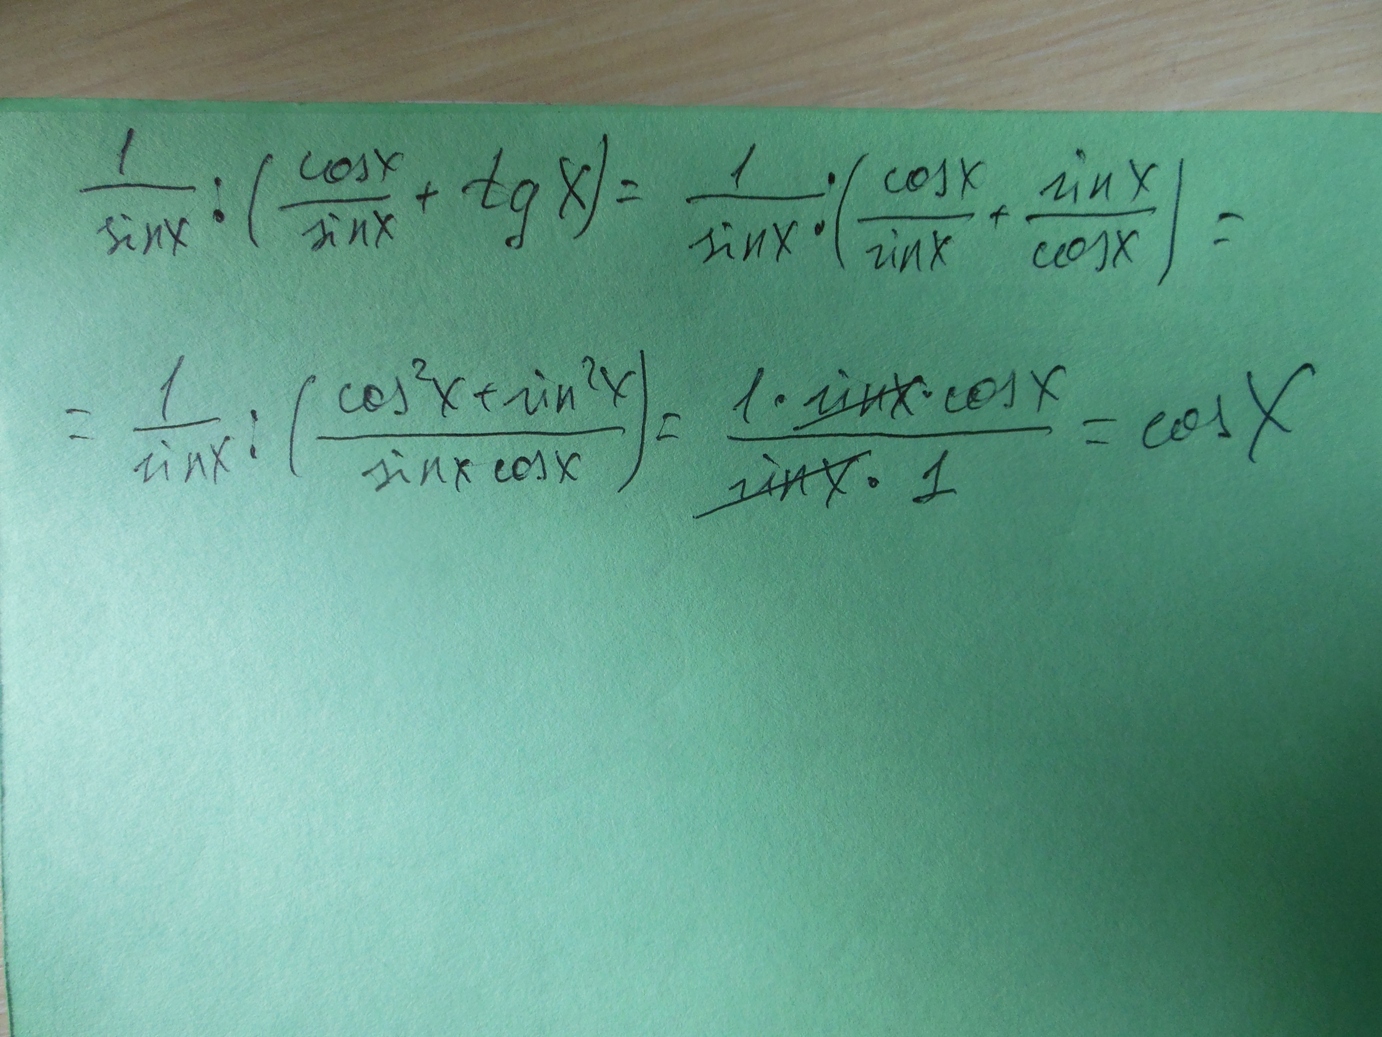 1/sinx : (cosx/sinx + tg x) = 1/sinx : (cosx/sinx + sinx/cosx) =
= 1/sinx : (cos²x + sin²x / sinx cosx) = 1 · sinx · cosx / sinx · 1 = cos x